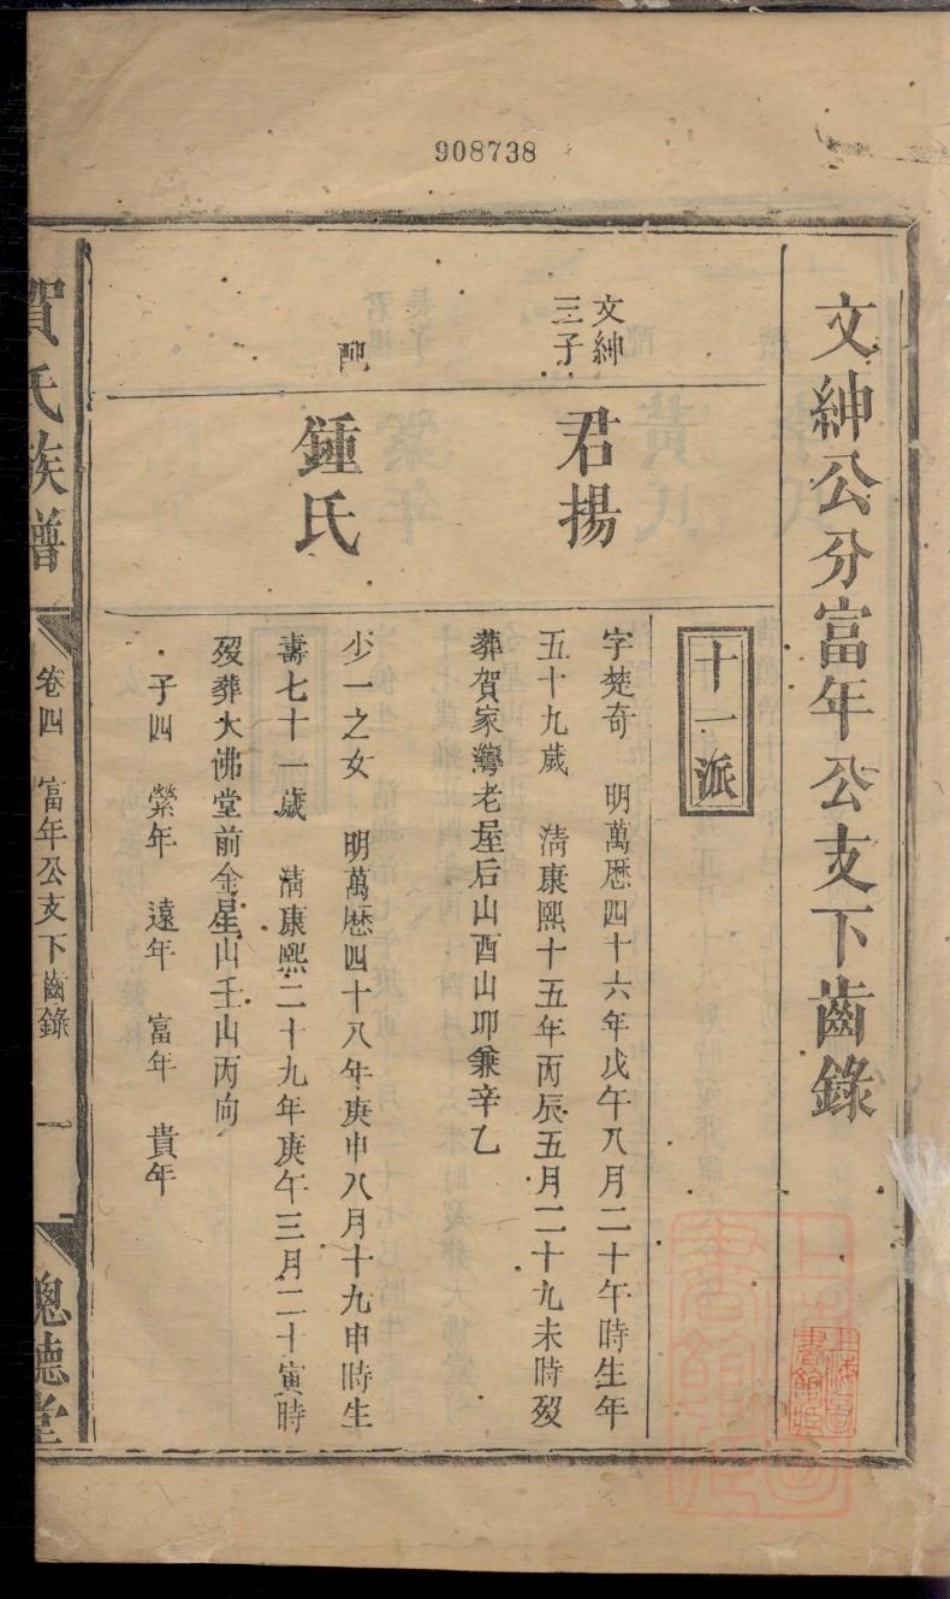 908738
文紳公分富年公支下齒錄
十一派
文紳
三子
君揚
字楚奇 明萬厯四十六年戊午八月二十午時生年
五十九歲 清康熙十五年丙辰五月二十九未時歿
葬賀家灣老屋后山酉山卯兼辛乙
配
鍾氏
少一之女 明萬厯四十八年庚申八月十九申時生
壽七十一歲 清康熙二十九年庚午三月二十寅時
歿葬大佛堂前金星山壬山丙向
子四 縈年 遠年 富年 貴年
賀氏族譜 卷四 富年公支下齒錄 一 德堂